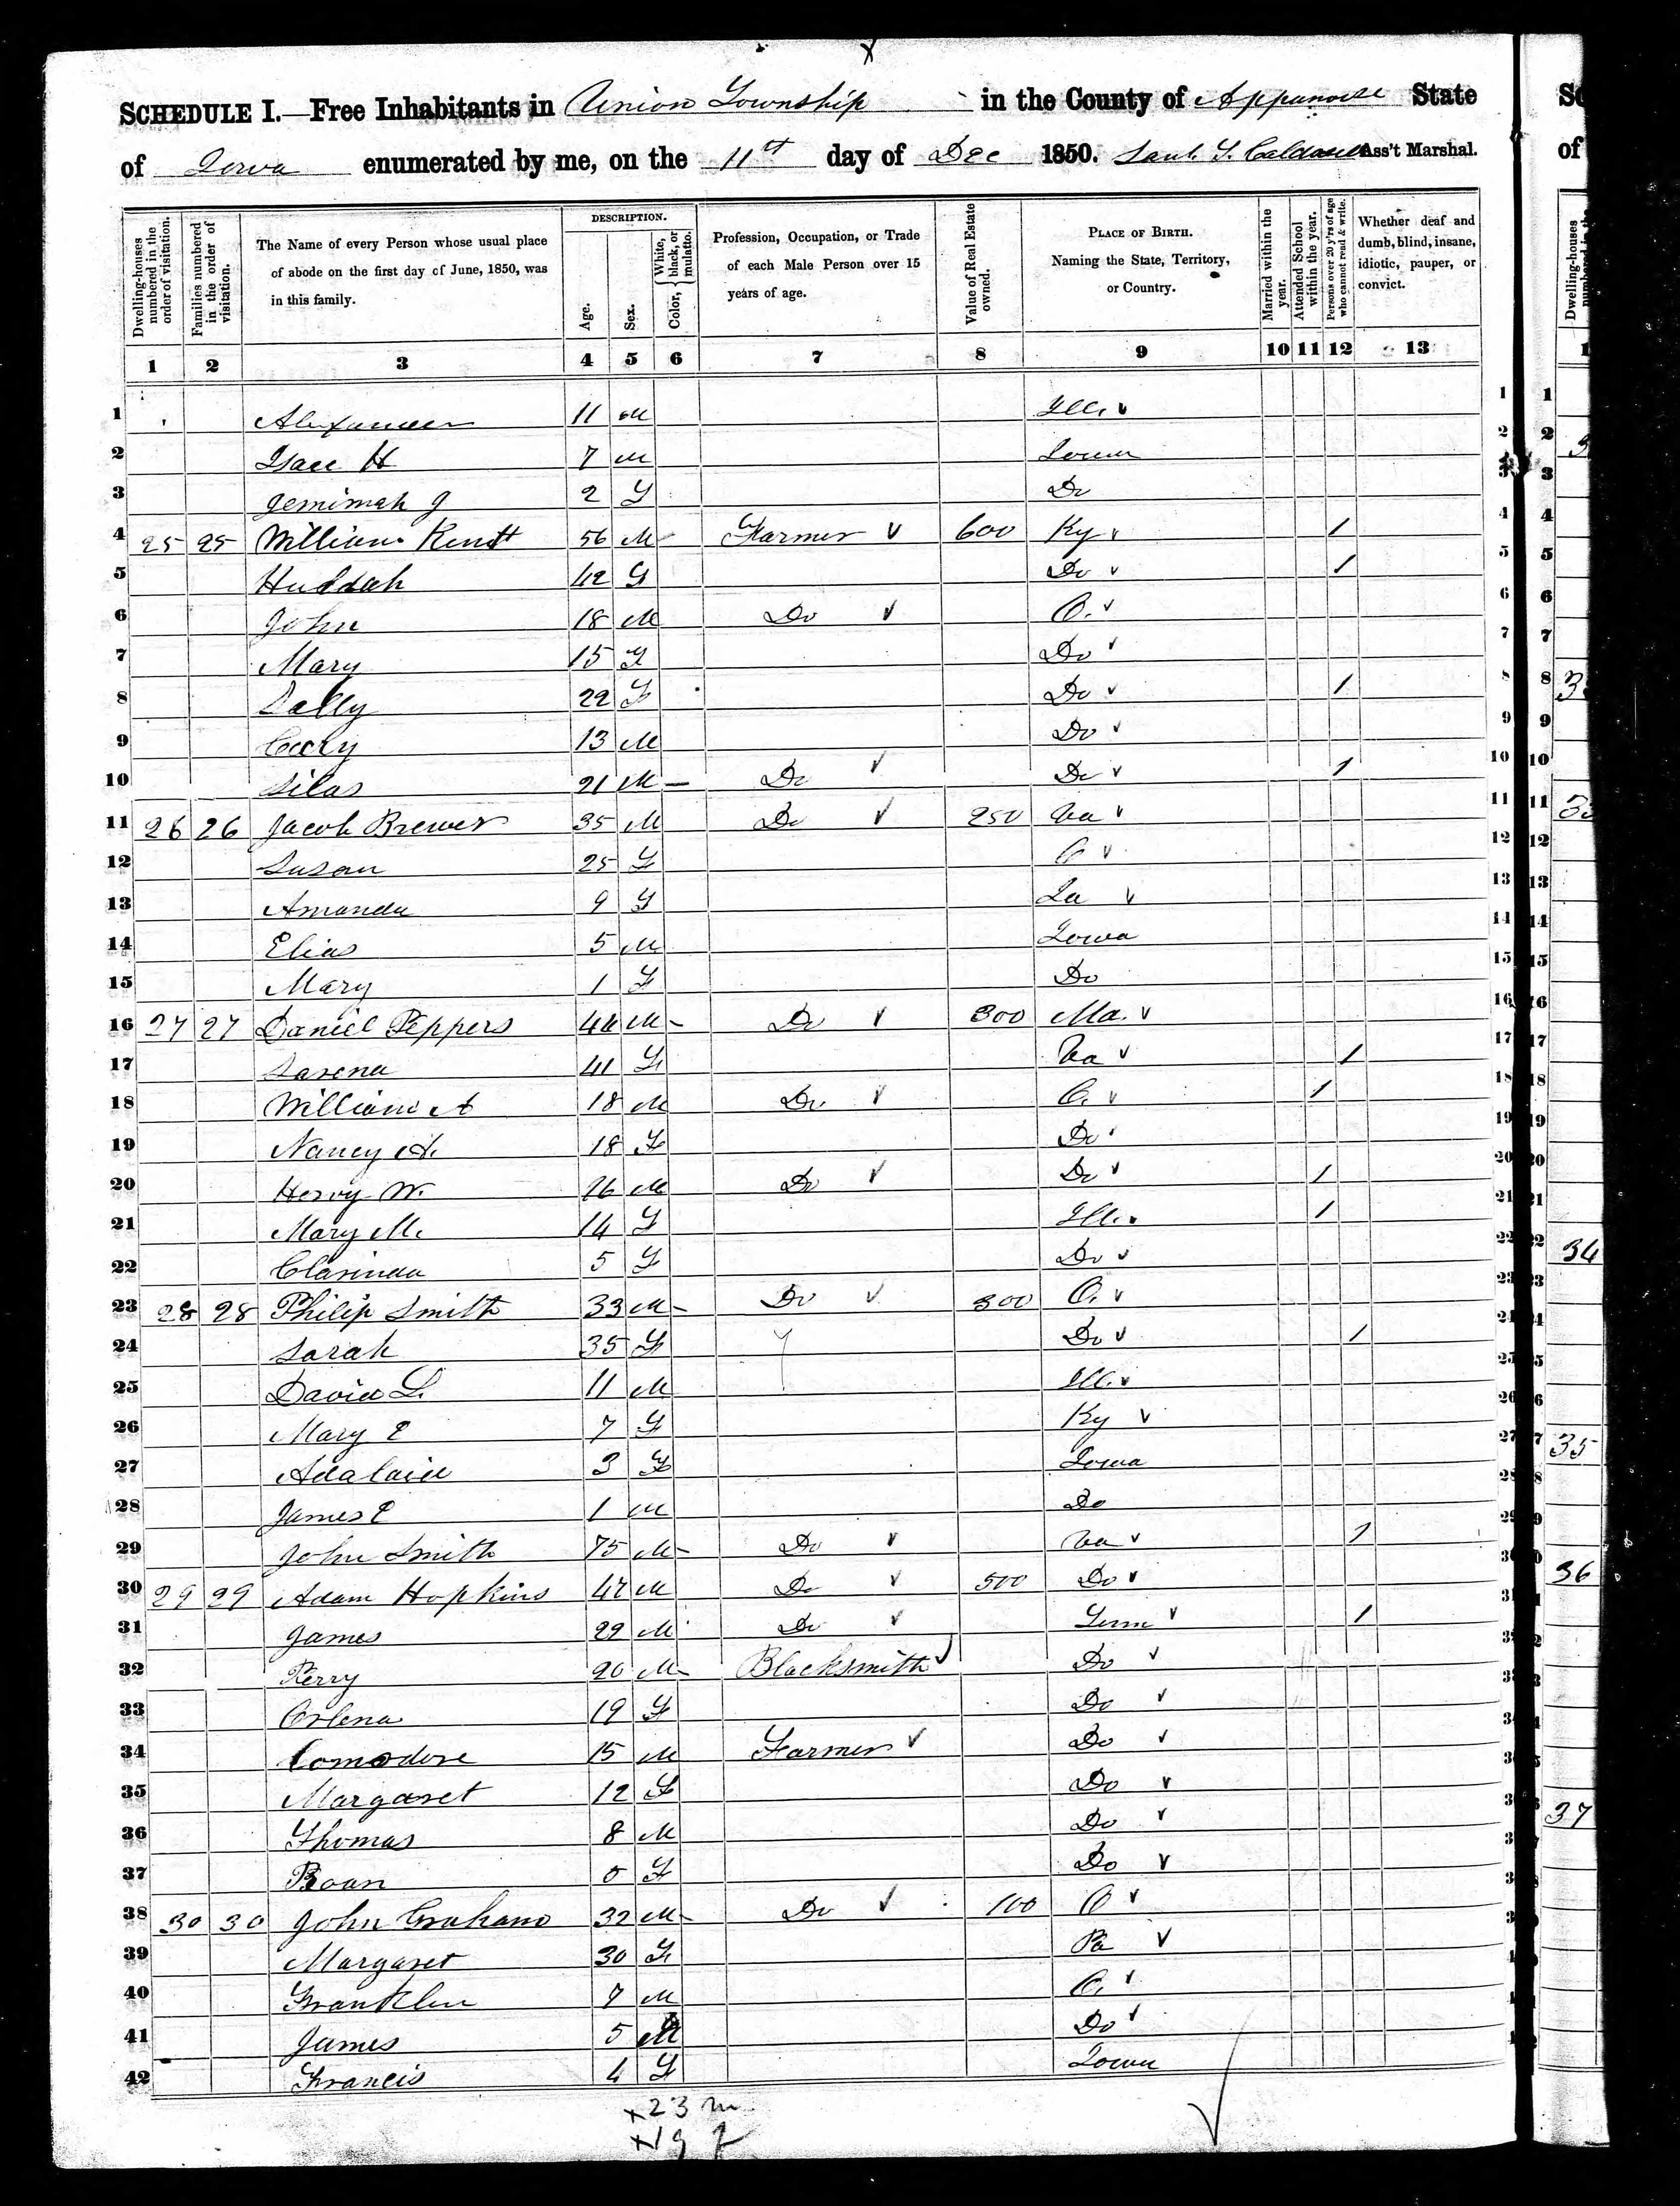 SCHEDULE I.—Free Inhabitants in Union Township in the County of Appanoose State
of Iowa enumerated by me, on the 11th day of Dec 1850. Ass't Marshal.
Dwelling-houses numbered in the order of visitation.
Families numbered in the order of visitation.
The Name of every Person whose usual place of abode on the first day of June, 1850, was in this family.
DESCRIPTION.
Age.
Sex.
Color, White, black, or mulatto.
Profession, Occupation, or Trade of each Male Person over 15 years of age.
Value of Real Estate owned.
PLACE OF BIRTH. Naming the State, Territory, or Country.
Married within the year.
Attended School within the year.
Persons over 20 y'rs of age who cannot read & write.
Whether deaf and dumb, blind, insane, idiotic, pauper, or convict.
1 2 3 4 5 6 7 8 9 10 11 12 13
1 Alexander 11 M Ill. 1
2 Isaac H 7 M Iowa 2
3 Jemimah J 2 F Do 3
4 25 25 William 56 M Farmer 600 Ky 1 4
5 Huldah 42 F Do 1 5
6 John 18 M Do O. 6
7 Mary 15 F Do 7
8 Sally 22 F Do 1 8
9 13 M Do 9
10 Silas 21 M Do Do 1 10
11 26 26 Jacob Brewer 35 M Do 250 Va 11
12 Susan 25 F O 12
13 Amanda 9 F Ia 13
14 Elias 5 M Iowa 14
15 Mary 1 F Do 15
16 27 27 Daniel Peppers 44 M Do 300 Ma. 16
17 Sarena 41 F Va 1 17
18 William A 18 M Do O. 1 18
19 Nancy A. 18 F Do 19
20 Hervy W. 16 M Do Do 1 20
21 Mary M. 14 F Ill. 1 21
22 Clarinda 5 F Do 22
23 28 28 Philip Smith 33 M Do 300 O. 23
24 Sarah 35 F Do 1 24
25 David L. 11 M Ill. 25
26 Mary E 7 F Ky 26
27 Adalaid 3 F Iowa 27
28 James E 1 M Do 28
29 John Smith 75 M Do Va 1 29
30 29 29 Adam Hopkins 47 M Do 500 Do 30
31 James 22 M Do Tenn 1
32 Perry 20 M Blacksmith Do
33 Orlena 19 F Do
34 Comodore 15 M Farmer Do
35 Margaret 12 F Do
36 Thomas 8 M Do
37 F Do
38 30 30 John Graham 32 M Do 100 O
39 Margaret 30 F Pa
40 Franklin 7 M O.
41 James 5 M Do
42 Francis 4 F Iowa
23 m
19 f